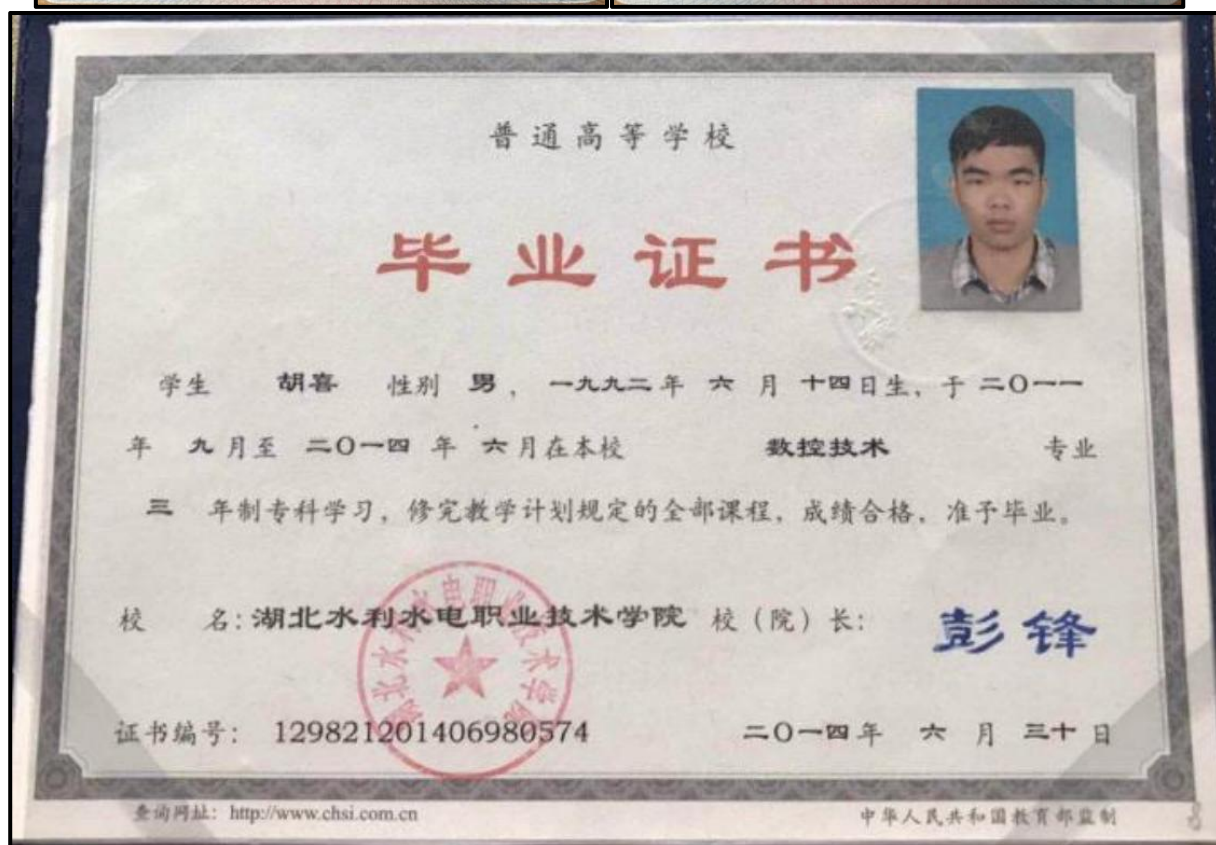 普通高等学校
毕业证书
学生 胡喜 性别 男，一九九二年 六 月 十四日生，于 二〇一一
年 九月至 二〇一四 年 六月在本校 数控技术 专业
三 年制专科学习，修完教学计划规定的全部课程，成绩合格，准予毕业。
校 名：湖北水利水电职业技术学院 校（院）长：彭锋
湖北水利水电职业技术学院
证书编号：129821201406980574 二〇一四年 六 月 三十 日
查询网址：http://www.chsi.com.cn 中华人民共和国教育部监制